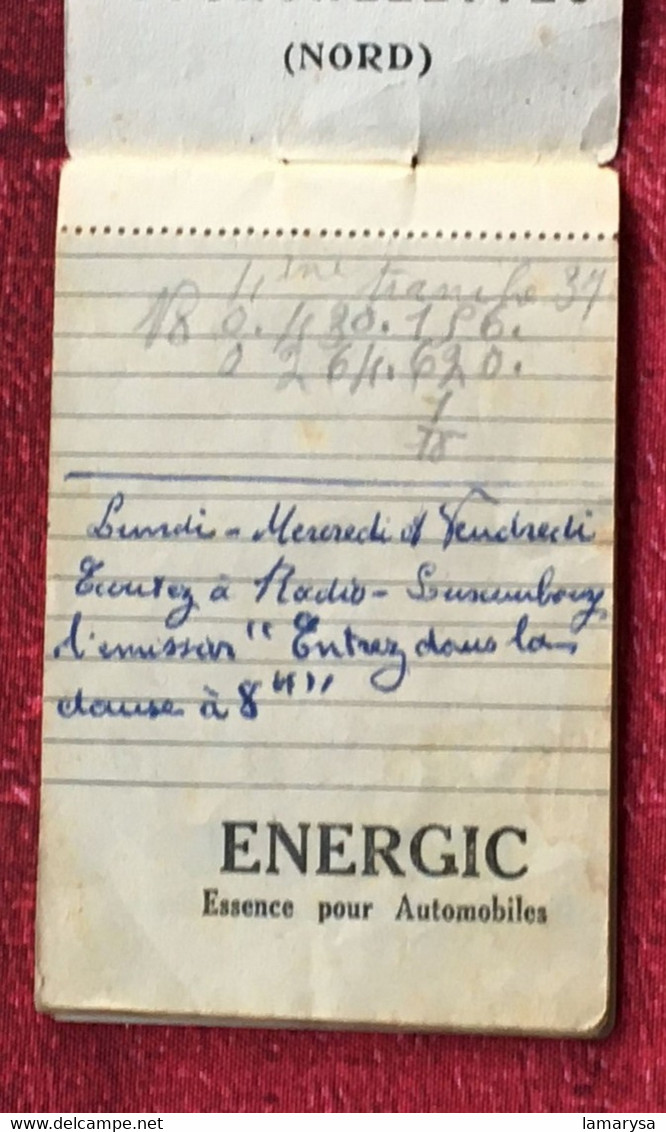 (NORD)
4me tranche 37
N° 0.430.156.
0 264.620.
1
Lundi - Mercredi et Vendredi
Ecoutez à Radio - Luxembourg
l'emission "Entrez dans la
danse à 8"
ENERGIC
Essence pour Automobiles
lamarysa